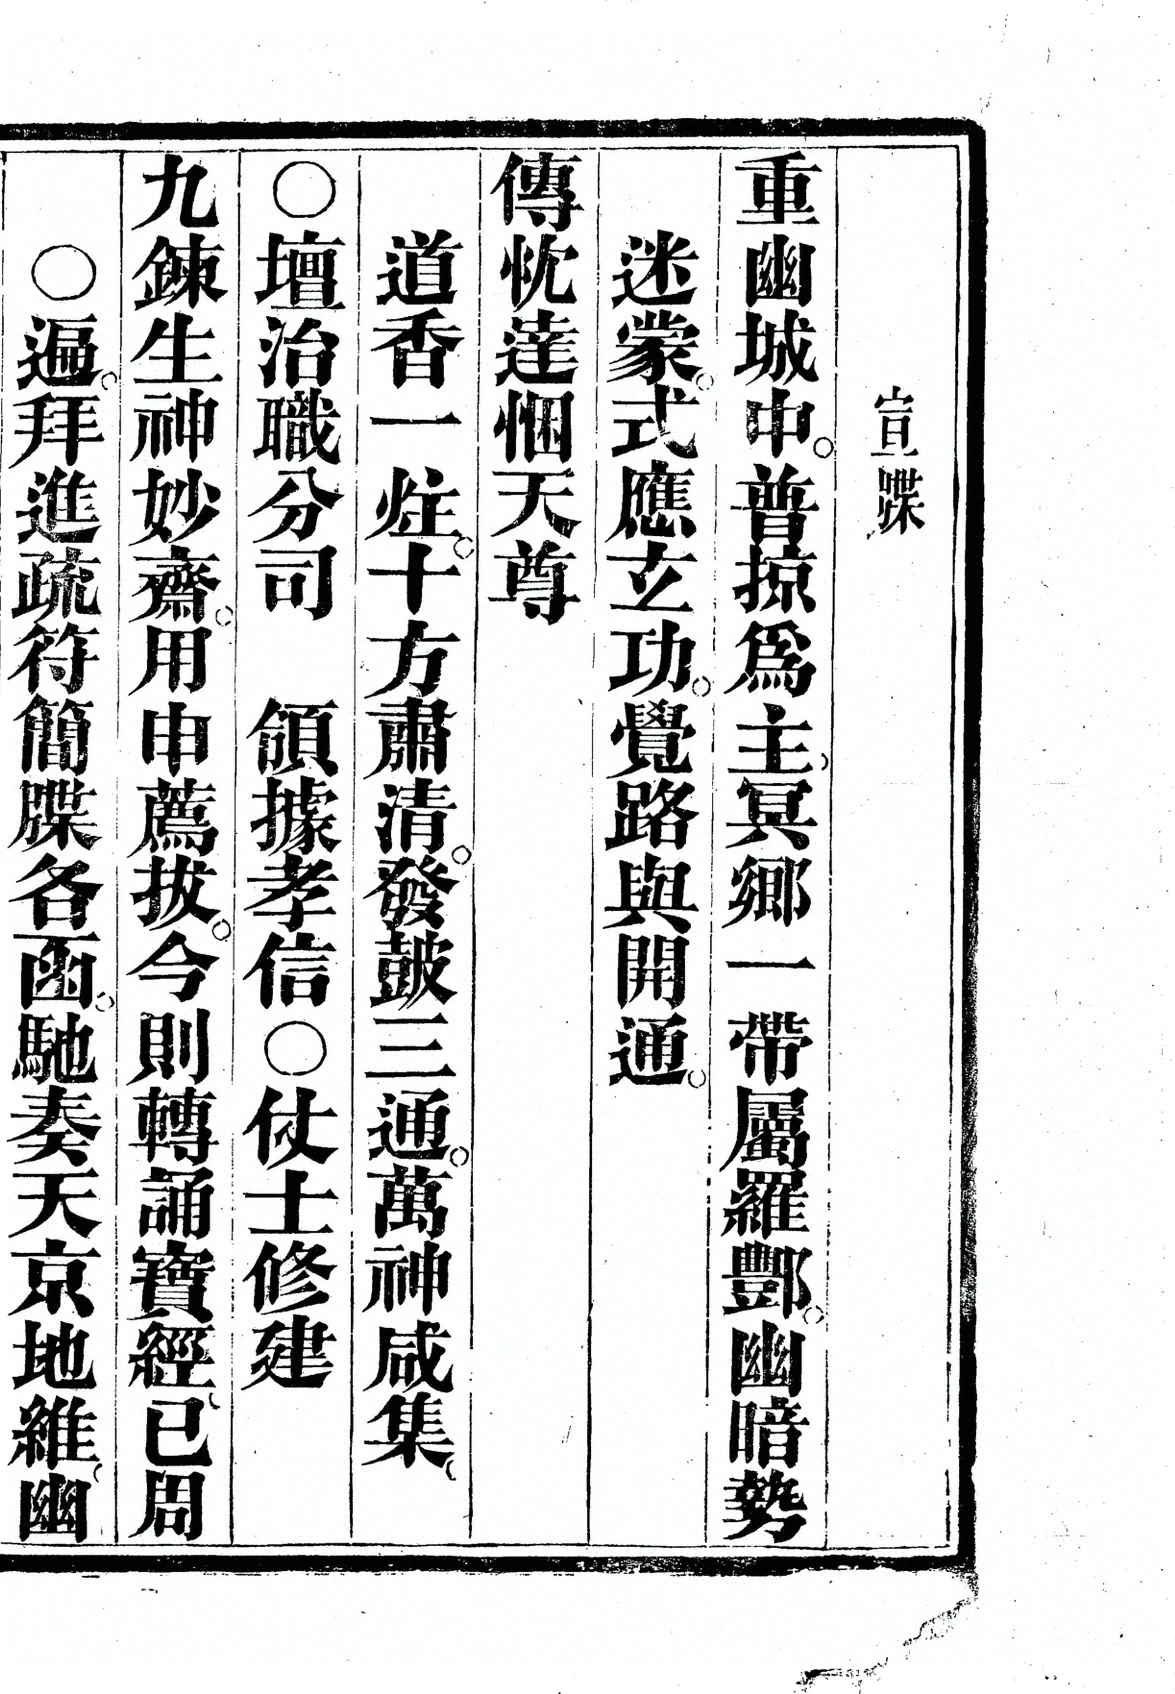 宣牒
重幽城中。普掠爲主、冥鄉一帶屬羅酆。幽暗勢
迷蒙。式應立功。覺路與開通。
傳忱達悃天尊
道香一炷。十方肅清。發鼓三通。萬神咸集、
○壇治職分司　領據孝信○仗士修建
九鍊生神妙齋。用申薦拔。今則轉誦寶經、已周
○遍。拜進疏符簡牒各函。馳奏天京地維、幽